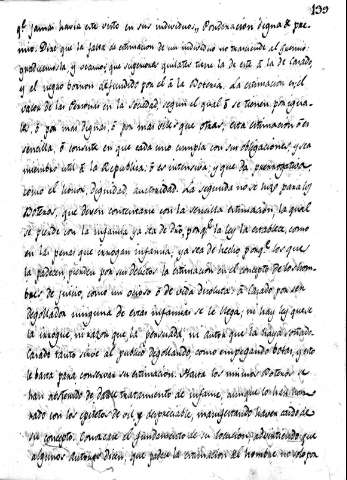 139
q.e jamas havia este visto en sus individuos, Ponderacion digna de pre-
mio. Dixe que la falta de estimacion de un individuo no trasciende al gremio:
y veamos, que superiores quilates tiene la de este á la de Casado,
y el negro borron difundido por él á la Boteria. La estimacion es el
valor de las Personas en la Sociedad, segun el qual ó se tienen por igua-
les, ó por mas dignas, ó por mas viles que otras, esta estimacion ó es
sencilla, ó consiste en que cada uno cumpla con sus obligaciones, y sea
miembro util á la Republica: ó es intensiva, y que da prerrogativas
como el honor, dignidad, autoridad. La segunda no se hizo para los
Boteros, que deven contentarse con la sencilla estimacion, la qual
se pierde con la infamia ya sea de dro, porq.e la ley la establece, como
en las penas que irrogan infamia, ya sea de hecho porq.e los que
la padecen pierden por sus delitos la estimacion en el concepto de los hom-
bres de juicio, como un ocioso ó de vida disoluta: á Casado por ser
degollador ninguna de estas infamias se le llega, ni hay ley que se
la irrogue, ni razon que la persuada, ni autor que la haya soñado.
Casado tanto sirve al publico degollando, como empegando botas, y esto
le basta para conservar su estimacion. Hasta los mismos Boteros se
han abstenido de darle tratamiento de infame, aunque lo han hon-
rado con los epitetos de vil, y despreciable, manifestando haver caido de
su concepto. Conozcase el fundamento de su locucion, advirtiendo que
algunos Autores dicen, que padece la estimacion del hombre no solo por